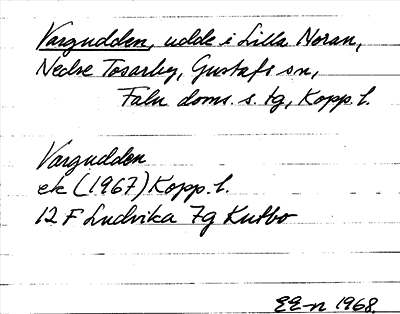 Vargudden, udde i Lilla Noran,
Nedre Tosarby, Gustafs sn,
Falu doms. s. tg, Kopp. l.
Vargudden
ek (1967) Kopp. l.
12 F Ludvika 7g Kutbo
EE-n 1968.